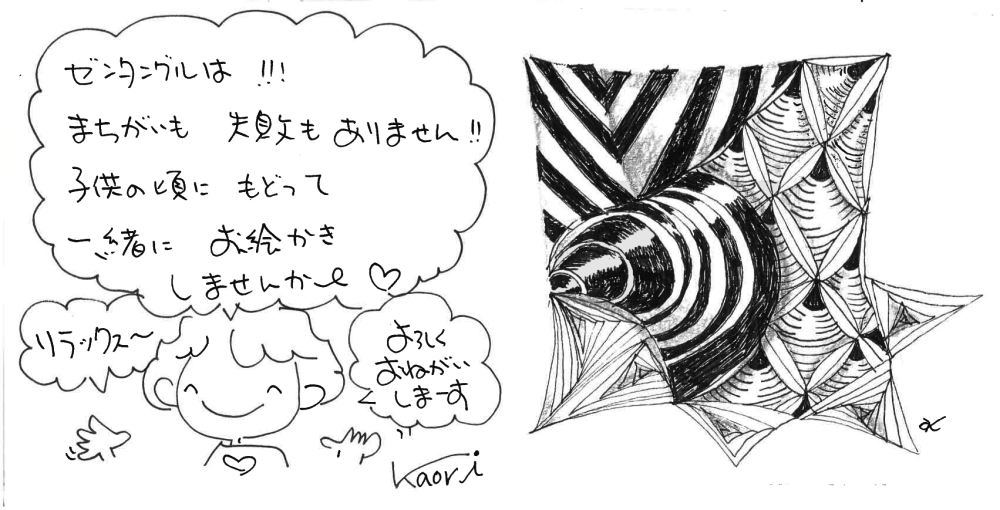 ゼンタングルは !!!
まちがいも 失敗も ありません!!
子供の頃に もどって
一緒に お絵かき
しませんか〜 ♡
リラックス〜
よろしく
おねがい
しまーす
Kaori